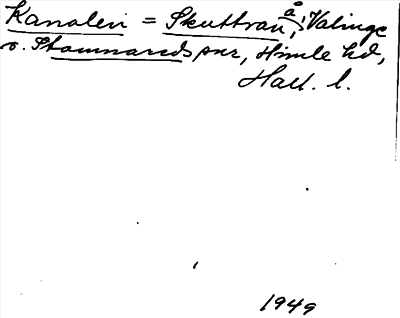 Kanalen = Skuttran, å i Valinge
o. Stamnareds snr, Himle hd,
Hall. l.
1949